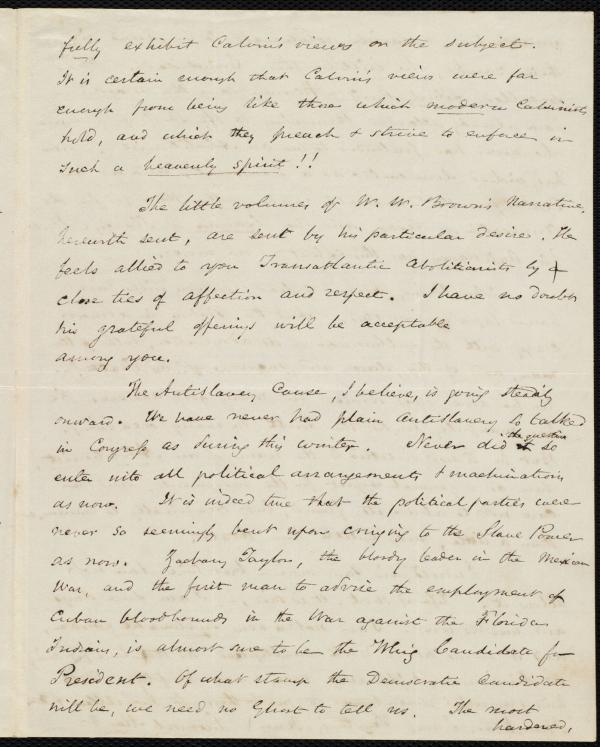 fully exhibit Calvin's views on the subject.
It is certain enough that Calvin's views were far
enough from being like those which modern Calvinists
hold, and which they preach & strive to enforce in
such a heavenly spirit!!
The little volumes of W. W. Brown's Narrative,
herewith sent, are sent by his particular desire. He
feels allied to you Transatlantic Abolitionists by
close ties of affection and respect. I have no doubt
his grateful offerings will be acceptable
among you.
The Antislavery Cause, I believe, is going steadily
onward. We have never had plain antislavery so talked
in Congress as during this winter. Never did the question so
enter into all political arrangements & machinations
as now. It is indeed true that the political parties were
never so seemingly bent upon cringing to the Slave Power
as now. Zachary Taylor, the bloody leader in the Mexican
War, and the first man to advise the employment of
Cuban bloodhounds in the War against the Florida
Indians, is almost sure to be the Whig Candidate for
President. Of what stamp the Democratic Candidate
will be, we need no Ghost to tell us. The most
hardened,